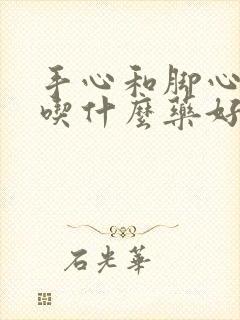 手心和脚心
喫什麼藥好
石光華